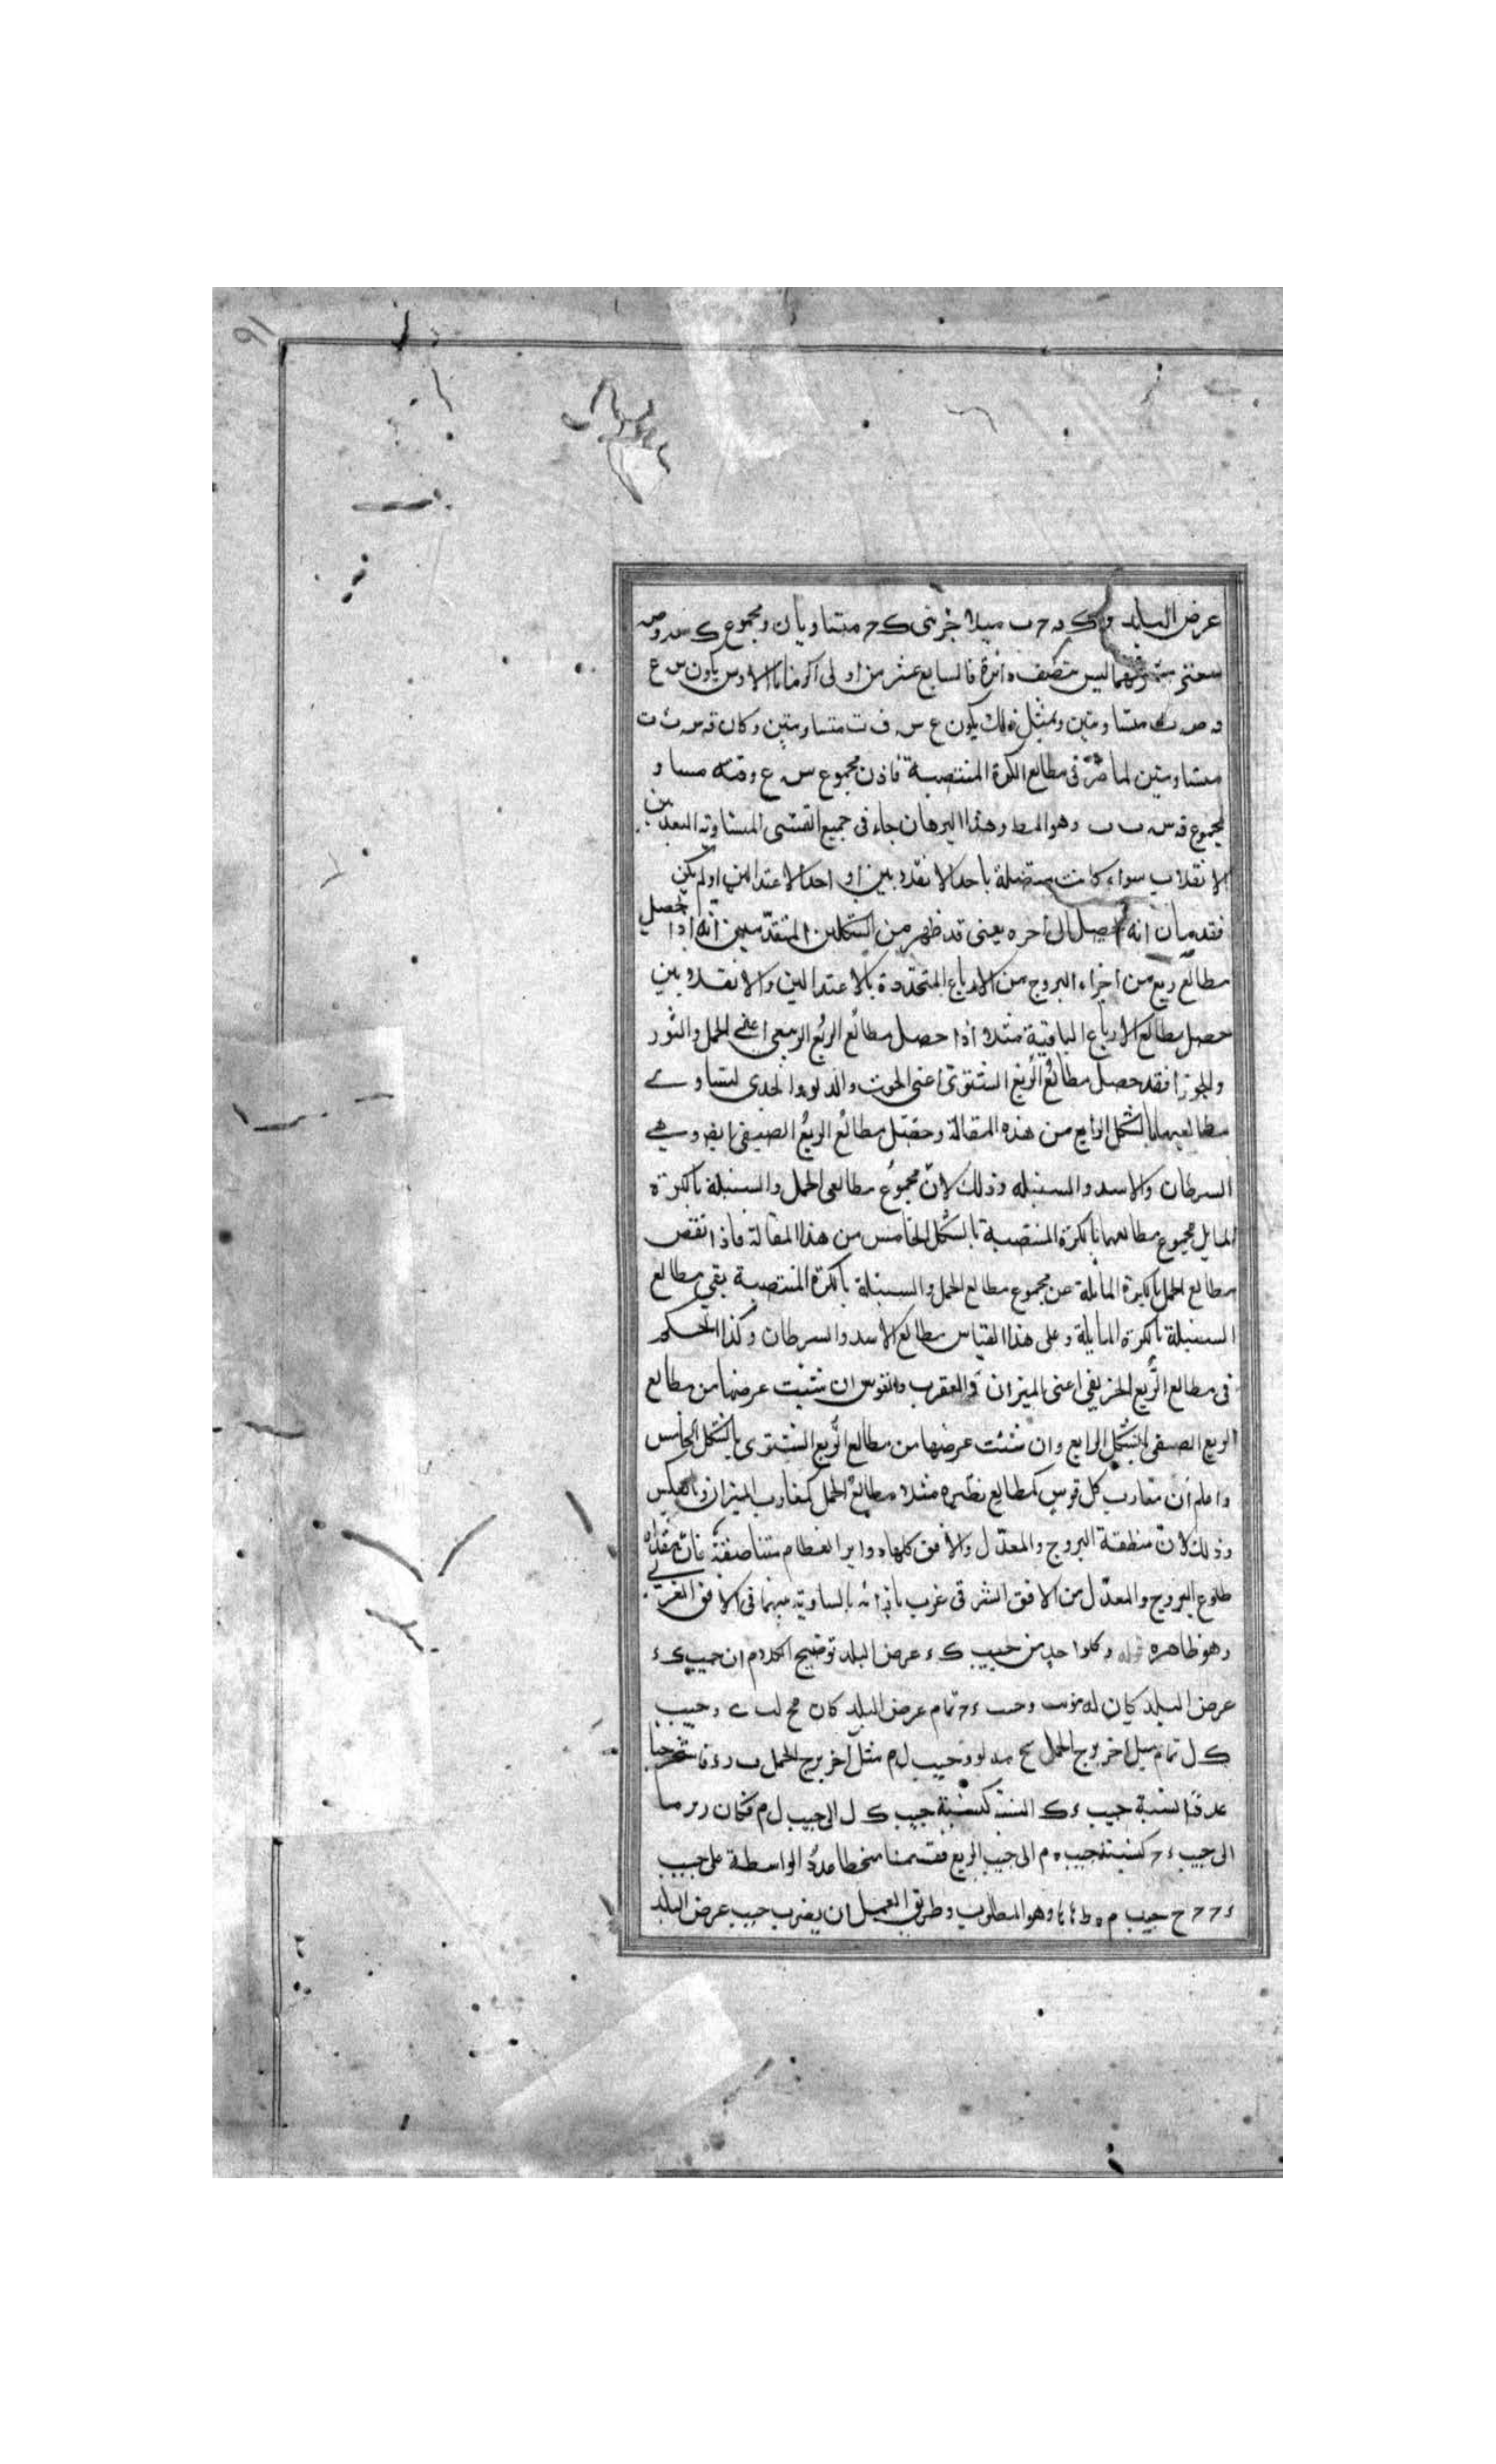 عرض البلد و ک ه ح ب ميلا جزئى ک ح متساويان ومجموع ک س وص
ليس بنصف دائرة فالسابع عشر من اولى اكر مانالاوس يكون س ع
متساويتين وبمثل ذلك يكون ع س ف ت متساويتين وكان ق س ث ت
متساويتين لما مر فى مطالع الكرة المنتصبة فاذن مجموع س ع وقته مساو
لمجموع ق س ب ب وهو المط وهذا البرهان جاء فى جميع القسى المتساوية البعد من
الانقلاب سواء كانت متصلة باحد الانقلابين او احد الاعتدالين او لم يكن
فقد بان انه اذا حصل الى اخره يعنى قد ظهر من الشكلين المتقدمين انه اذا حصل
مطالع ربع من اجزاء البروج من الارباع المتحددة بالاعتدالين والانقلابين
حصل مطالع الارباع الباقية مثلا اذا حصل مطالع الربع الربيعى اعنى الحمل والثور
والجوزا فقد حصل مطالع الربع الشتوى اعنى الحوت والدلو والجدى لتساوى
مطالعهما بالشكل الرابع من هذه المقالة وحصل مطالع الربع الصيفى ايضا وهى
السرطان والاسد والسنبله وذلك لان مجموع مطالعى الحمل والسنبلة بالكرة
المايل مجموع مطالعهما بالكرة المنتصبة بالشكل الخامس من هذا المقالة فاذا نقص
مطالع الحمل بالكرة المائلة من مجموع مطالع الحمل والسنبلة بالكرة المنتصبة بقى مطالع
السنبلة بالكرة المايلة وعلى هذا القياس مطالع الاسد والسرطان وكذا الحكم
فى مطالع الربع الخريفى اعنى الميزان والعقرب والقوس ان شئت عرضها من مطالع
الربع الصيفى بالشكل الرابع وان شئت عرضها من مطالع الربع الشتوى بالشكل الخامس
واعلم ان مغارب كل قوس كمطالع نظيره مثلا مطالع الحمل كمغارب الميزان وبالعكس
وذلك لان منطقة البروج والمعدل والافق كلها دواير العظام متناصفة فان بمقدار
طلوع البروج والمعدل من الافق الشرقى غرب بازائه بالساوية منهما فى الافق الغربى
وهو ظاهره قوله وكلوا حد من جيب ک ء عرض البلد توضيح الكلام ان جيب ک ء
عرض البلد كان له وجيب ء ح تمام عرض البلد كان مح لب ى وجيب
ک ل تمام ميل اخر برج الحمل نح مه لو وجيب ل م مثل اخر برج الحمل
نسبة جيب ء ک النسبة كنسبة جيب ک ل الى جيب ل م فكان
الى جيب ء ح كنسبة جيب ه م الى جيب الربع فقسمنا منحطا عدد الواسطة على جيب
ء ح ح ح جيب م ه ط وهو المطلوب وطريق العمل ان يضرب جيب عرض البلد